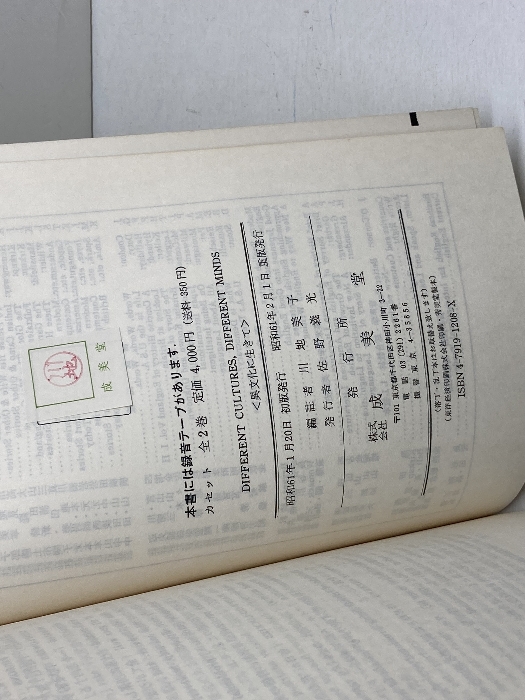 川地
成美堂
本書には録音テープがあります.
カセット 全2巻 定価 4,000円 (送料 350円)
DIFFERENT CULTURES, DIFFERENT MINDS
<異文化に生きて>
昭和61年1月20日 初版発行 昭和61年2月1日 重版発行
編註者 川地美子
発行者 佐野義光
発行所
株式会社 成美堂
〒101 東京都千代田区神田小川町 3-22
電話 03 (291) 2261番
振替東京 4-35856
(落丁・乱丁本はお取替え致します)
ISBN 4-7919-1208-X